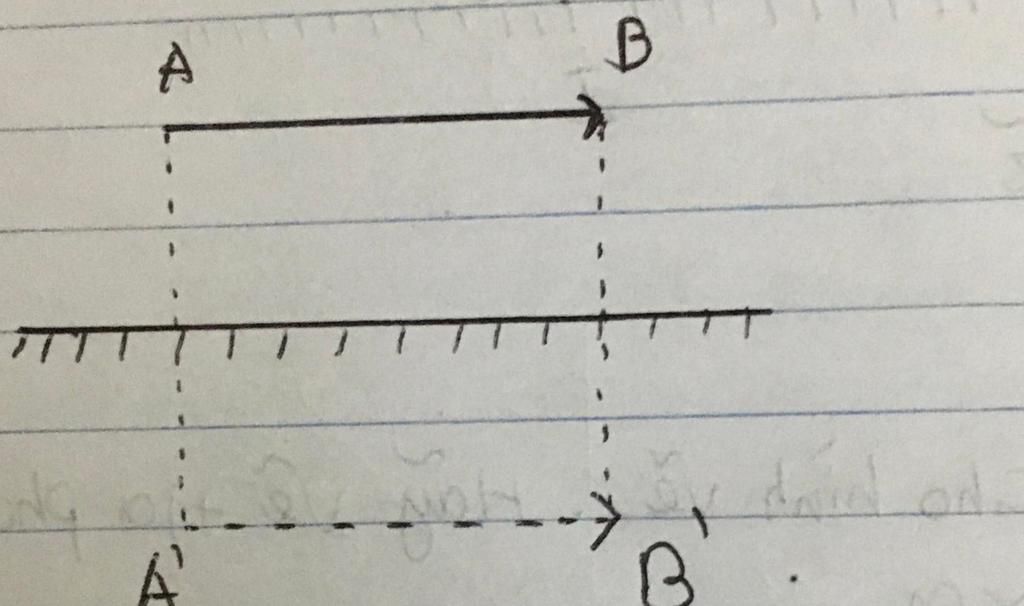 A B
A' B'